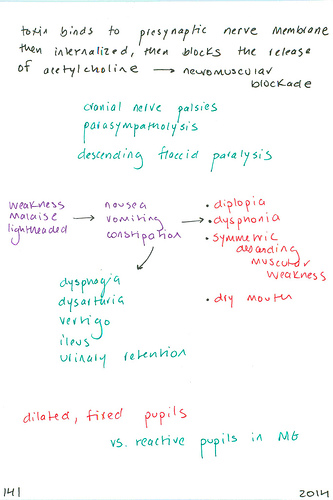 toxin binds to presynaptic nerve membrane
then internalized, then blocks the release
of acetylcholine → neuromuscular
blockade
cranial nerve palsies
parasympatholysis
descending flaccid paralysis
weakness
malaise
lightheaded
→
nausea
vomiting
constipation
→
• diplopia
• dysphonia
• symmetric
descending
muscular
weakness
• dry mouth
dysphagia
dysarthria
vertigo
ileus
urinary retention
dilated, fixed pupils
vs. reactive pupils in MG
141
2014